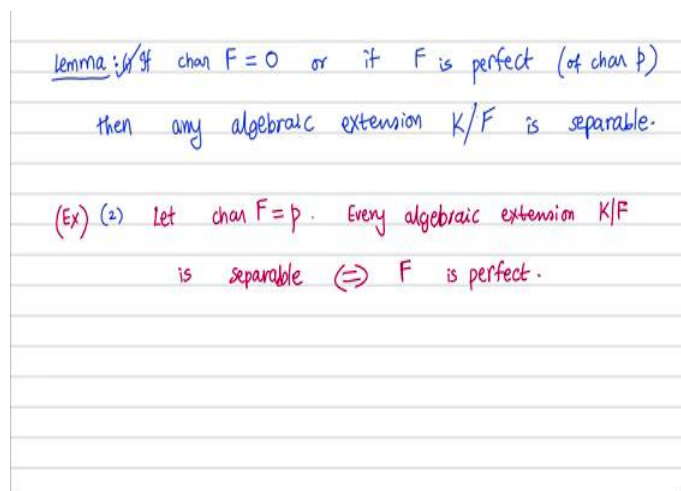 Lemma: (1) If char F = 0 or if F is perfect (of char p)
then any algebraic extension K/F is separable.
(Ex) (2) Let char F = p. Every algebraic extension K/F
is separable (=) F is perfect.